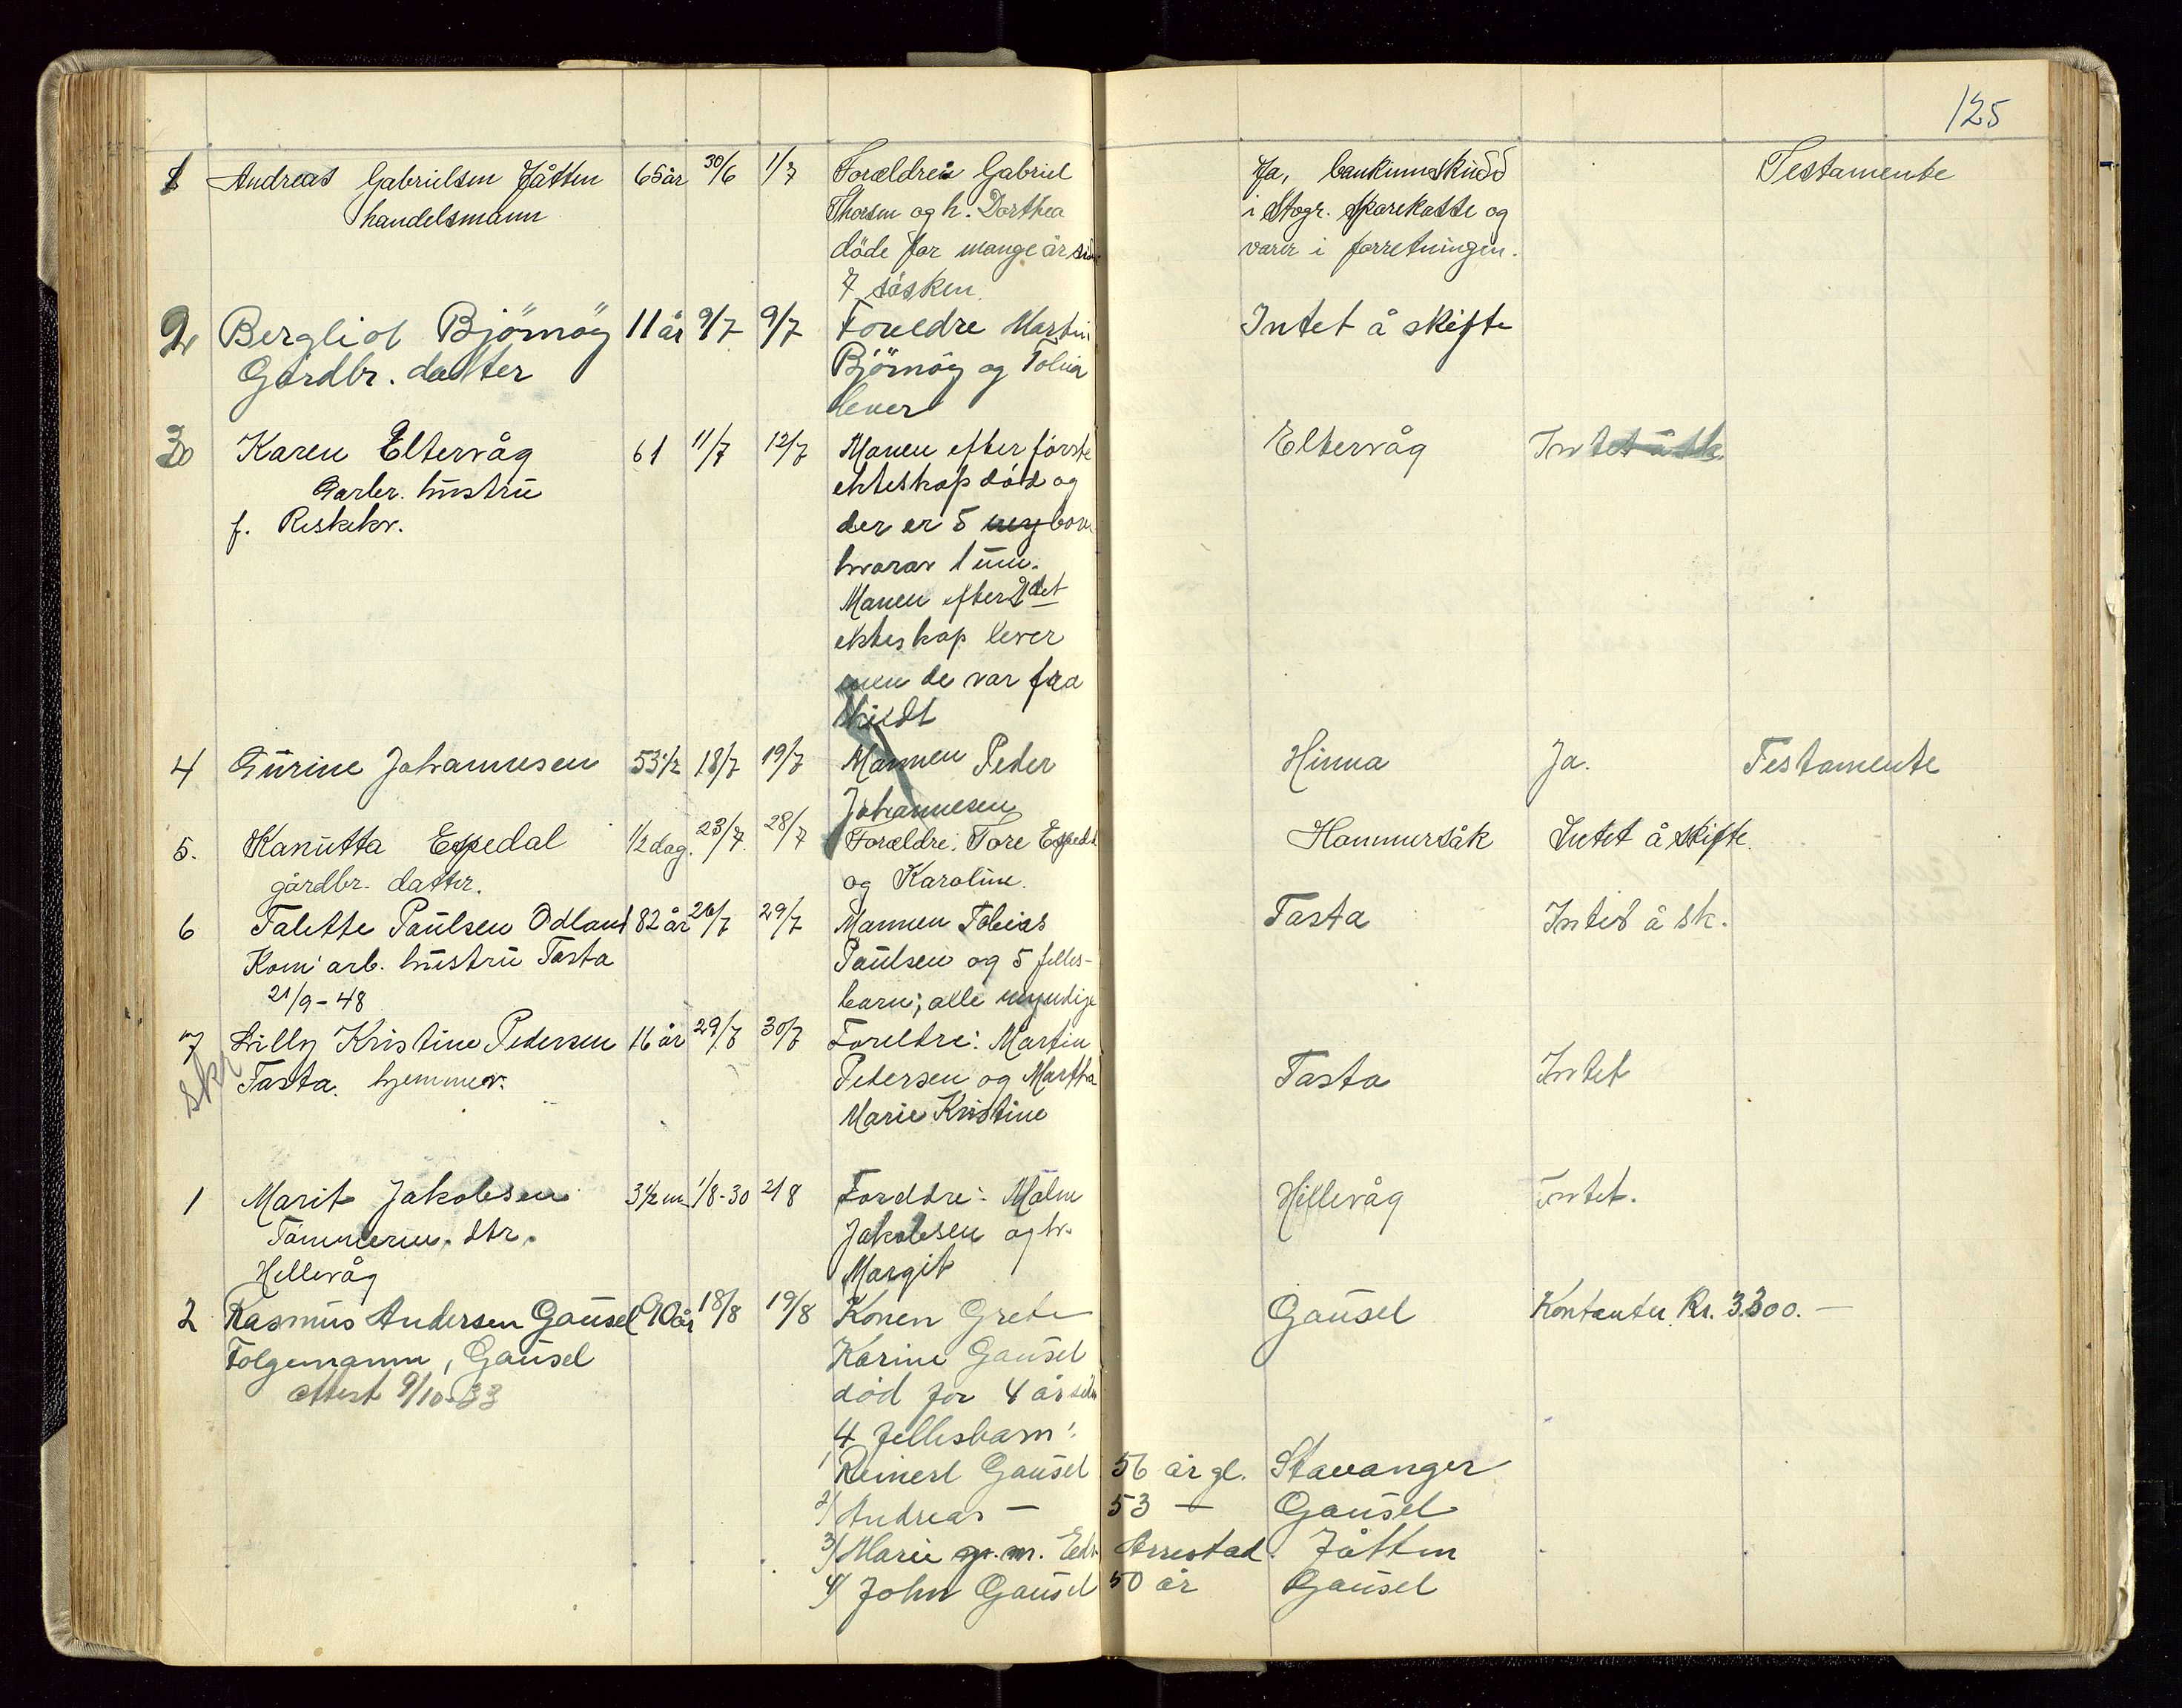 125
1 Andreas Gabrielsen Jåtten 65 år 30/6 1/7 Foreldre: Gabriel Ja, bankinnskudd Testamente
handelsmann Thorsen og h. Dorthea i Stvgr. Sparekasse og
döde for mange år siden varer i forretningen.
7 søsken.
2 Bergliot Björnöy 11 år 9/7 9/7 Foreldre Martin Intet å skifte
Gårdbr. datter Björnöy og Tolina
lever
3 Karen Eltervåg 61 11/7 12/7 Manen efter första Eltervåg Intet å sk.
Garbr. hustru ekteskap död og
f. Riskekv. der er 5 myg barn
hvorav 1 um.
Manen efter 2det
ekteskap lever
men de var fra
skildt
4 Gurine Johannesen 53 1/2 18/7 19/7 Mannen Peder Hinna Ja. Testamente
Johannesen
5. Kanutta Espedal 1/2 dag. 23/7. 28/7 Foreldre: Tore Espedal Hommersåk Intet å skifte.
gårdbr. datter. og Karoline.
6 Talette Paulsen Odland 82 år 26/7 29/7 Mannen Tobias Tasta Intet å sk.
Kom. arb. hustru Tasta Paulsen og 5 felles-
21/9-48 barn; alle myndige
7 Lilly Kristine Pedersen 16 år 29/7 30/7 Foreldre: Martin
skr Tasta. hjemmev. Petersen og Martha Tasta Intet
Marie Kristine
1 Marit Jakobsen 3 1/2 m 1/8-30 2/8 Foreldre: Malm Hillevåg Intet.
Tømmerm. dtr. Jakobsen og h.
Hillevåg Margit
2 Rasmus Andersen Gausel 90 år 18/8 19/8 Konen Grete Gausel Kontanter Kr. 3300.-
Folgemann, Gausel Karine Gausel
Attest 9/10-33 død for 4 år siden
4 fellesbarn:
1/ Reinert Gausel 56 år gl. Stavanger
2/ Andreas — 53 — Gausel
3/ Marie g. m. Edv. Arrestad. Jåtten
4/ John Gausel 50 år Gausel